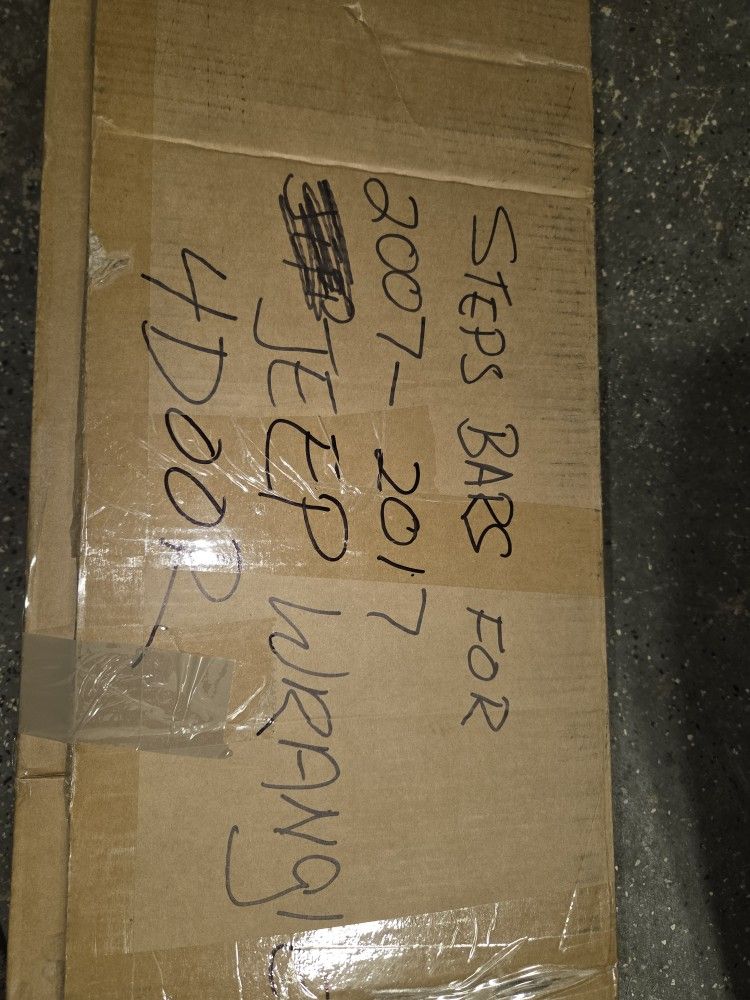 STEPS BARS FOR
2007-2017
JEEP WRANGL
4DOOR